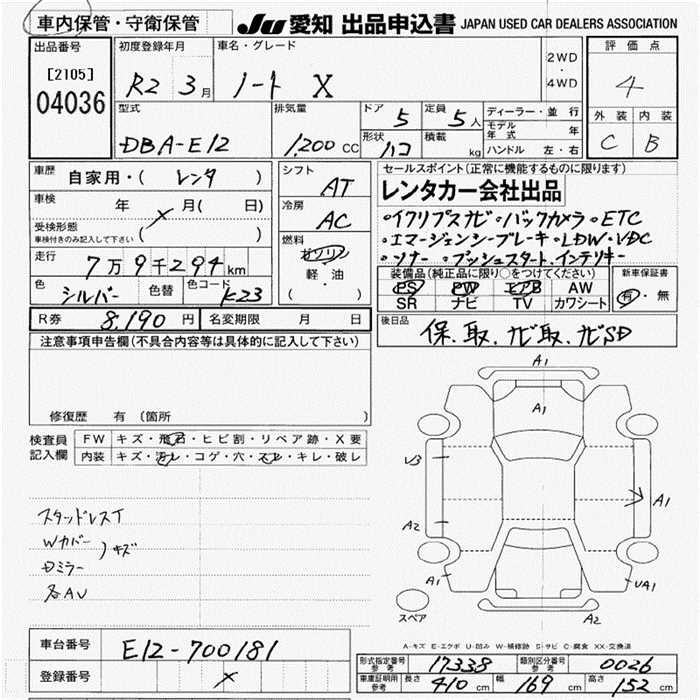 車内保管・守衛保管
JU 愛知 出品申込書 JAPAN USED CAR DEALERS ASSOCIATION
出品番号
[2105]
04036
初度登録年月
R2 3月
車名・グレード
ノート X
2WD
・
4WD
評価点
4
外装 内装
C B
型式
DBA-E12
排気量
1,200 CC
ドア
5
定員
5人
形状
ハコ
積載
kg
ディーラー・並行
モデル年式 年
ハンドル 左・右
車歴
自家用・( レンタ )
車検
年 × 月( 日)
受検形態
車検付きのみ記入して下さい ( )
走行
7万9千294km
色
シルバー
色替
色コード
K23
シフト
AT
冷房
AC
燃料
ガソリン
軽・油
( )
セールスポイント(正常に機能するものに限ります)
レンタカー会社出品
◦イクリプスナビ◦バックカメラ◦ETC
◦エマージェンシーブレーキ◦LDW◦VDC
◦ソナー◦プッシュスタート、インテリキー
装備品(純正品に限り○をつけてください)
PS PW エアB AW
SR ナビ TV カワシート
新車保証書
有・無
R券 8,190円
名変期限 月 日
後日品
保、取、ナビ取、ナビSD
注意事項申告欄(不具合内容等は具体的に記入して下さい)
修復歴 有(箇所 )
検査員
記入欄
FW キズ・飛石・ヒビ割・リペア跡・X要
内装 キズ・汚レ・コゲ・穴・スレ・キレ・破レ
スタッドレスT
Wカバー
)キズ
Dミラー
各AU
A1
A1
V3
A2
A1
A1
UA1
A2
スペア
A-キズ E-エクボ U-凹み W-補修跡 S-サビ C-腐食 XX-交換済
車台番号 E12-700181
登録番号 ×
形式指定番号
参考
17338
類別区分番号
参考
0026
車庫証明用
参考
長さ 410cm 幅 169cm 高さ 152cm